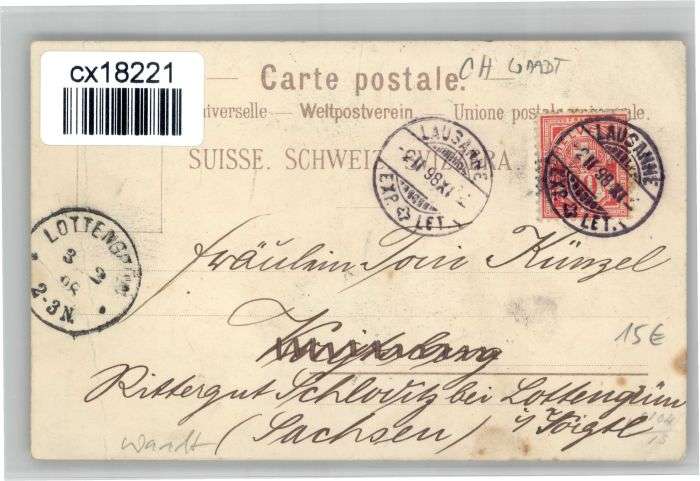 cx18221
CH WAADT
Carte postale.
iverselle — Weltpostverein. Unione postale
SUISSE. SCHWEIZ.
LAUSANNE
-2 II 98 XI
EXP. LET.
LAUSANNE
-2 II 98 XI
EXP. LET.
LOTTENGRÜN
3 2
98
2-3 N.
Fräulein Toni Künzel
15€
Rittergut Schloditz bei Lottengrün
(Sachsen) i/Voigtl
Waadt
15